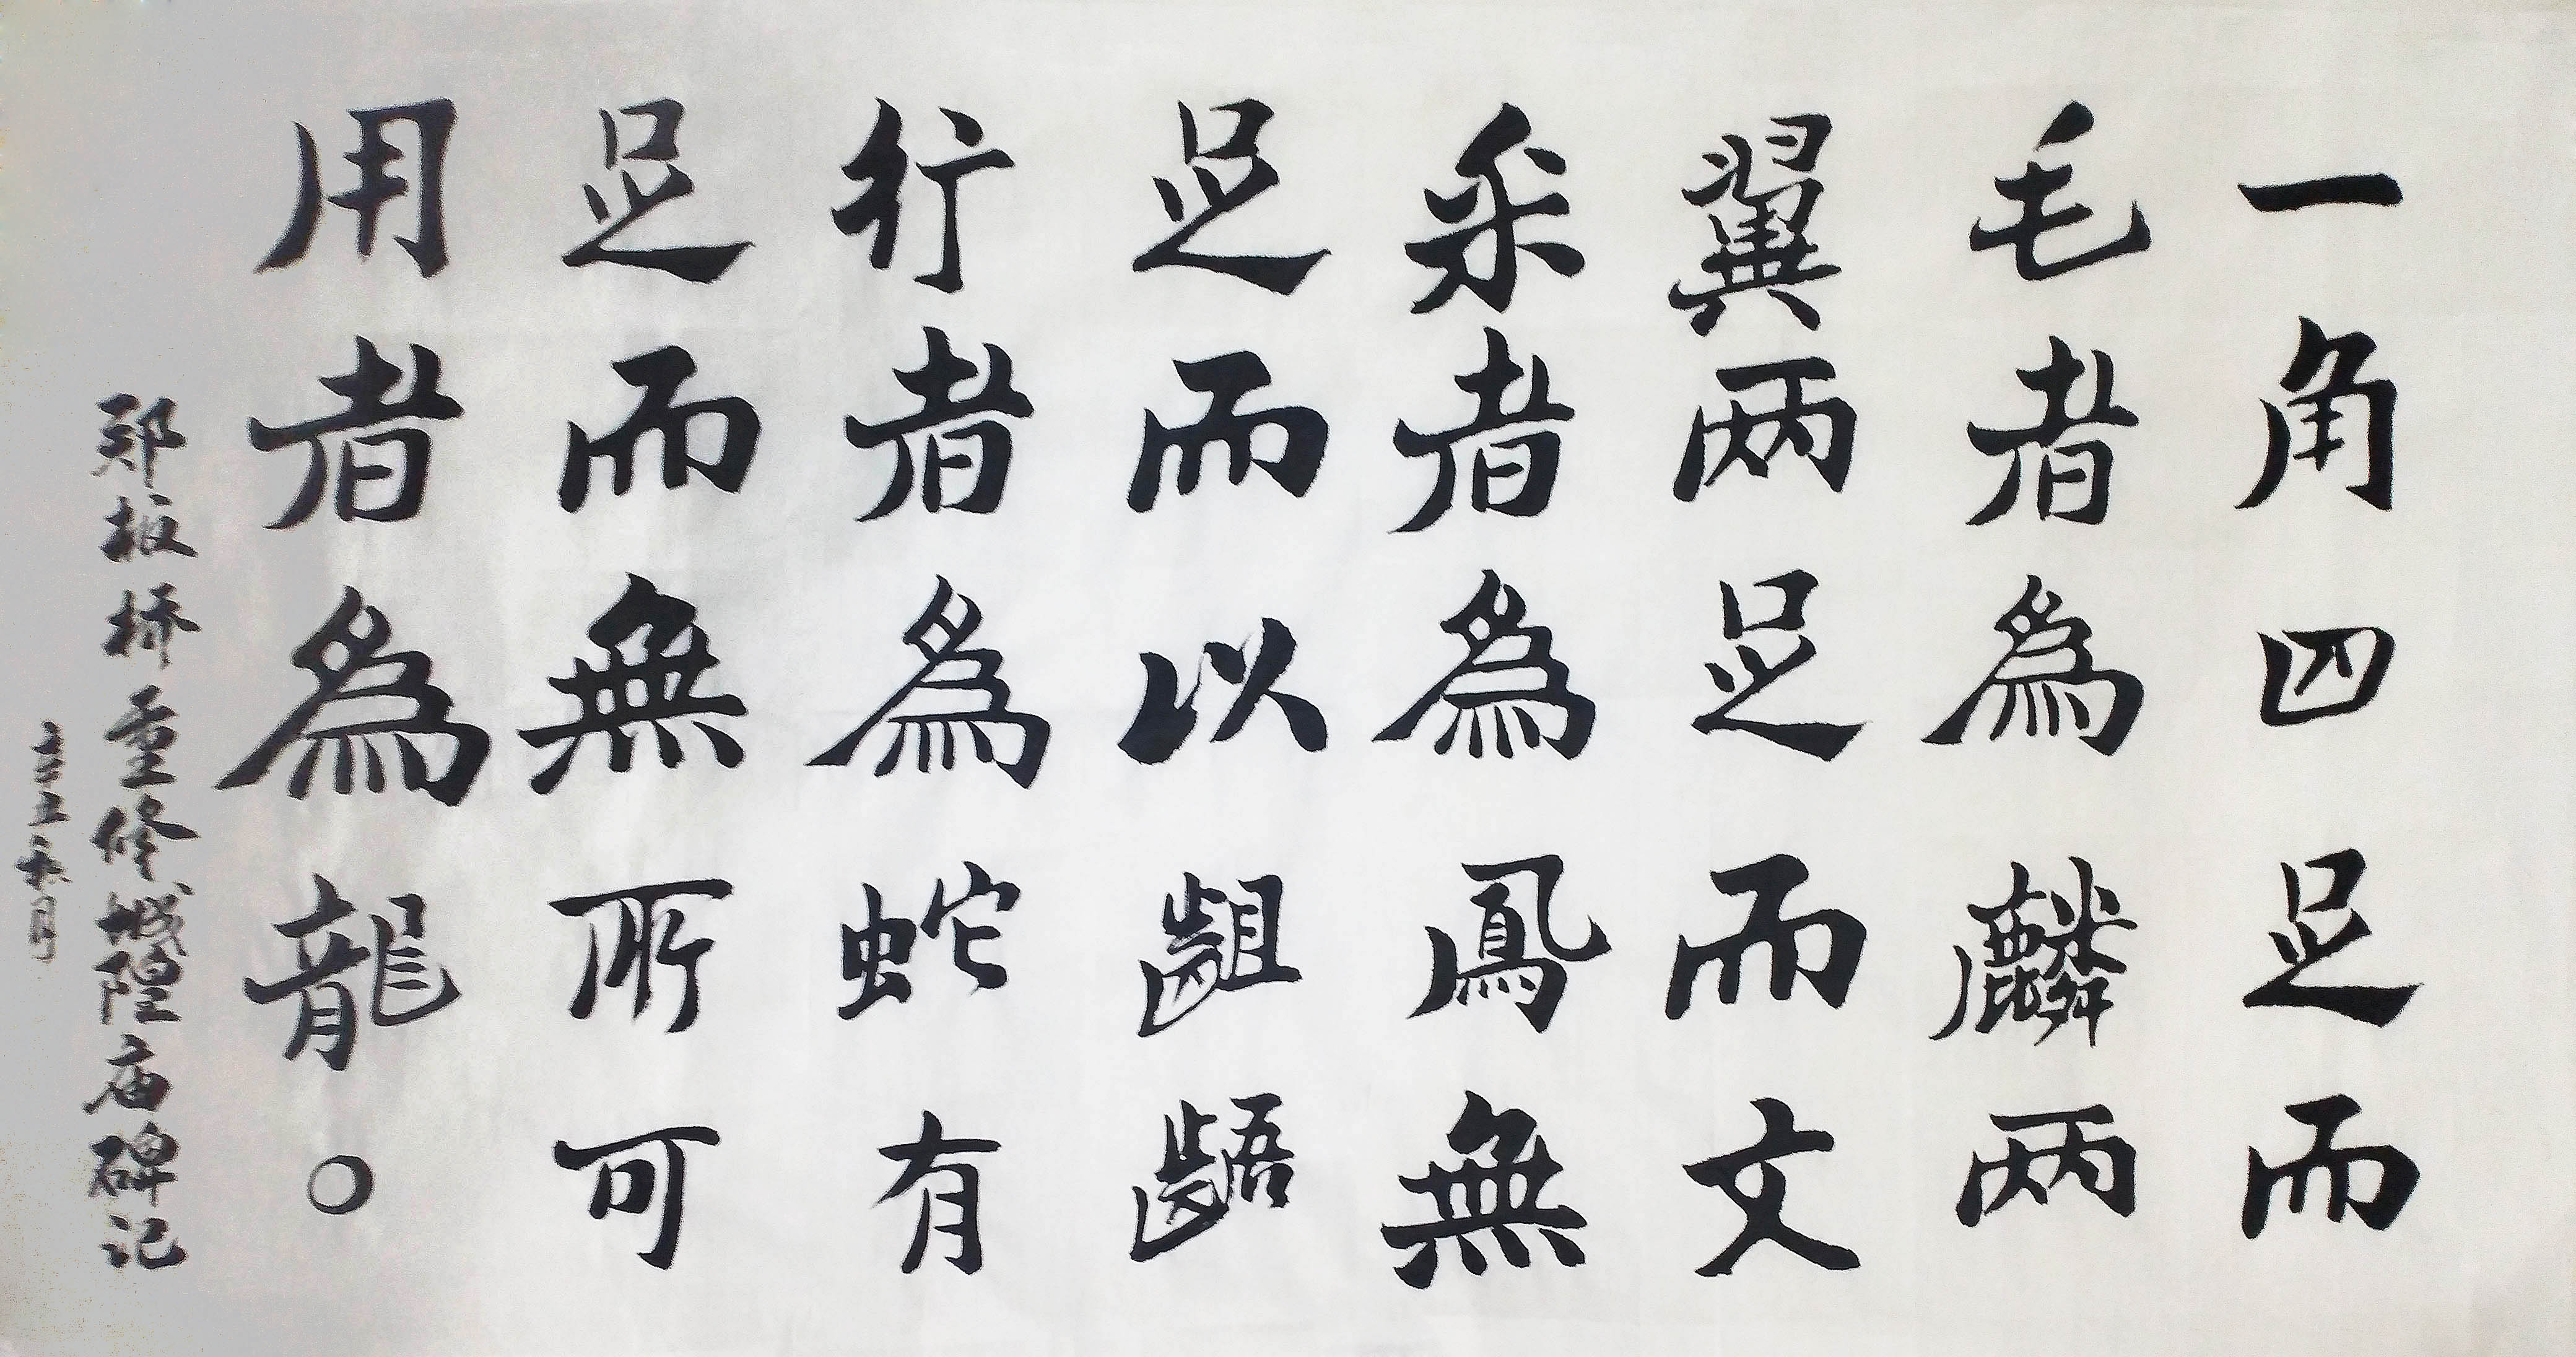 一角四足而
毛者為麟兩
翼兩足而文
采者為鳳無
足而以齟齬
行者為蛇有
足而無所可
用者為龍○
郑板桥重修城隍庙碑记
辛丑春月